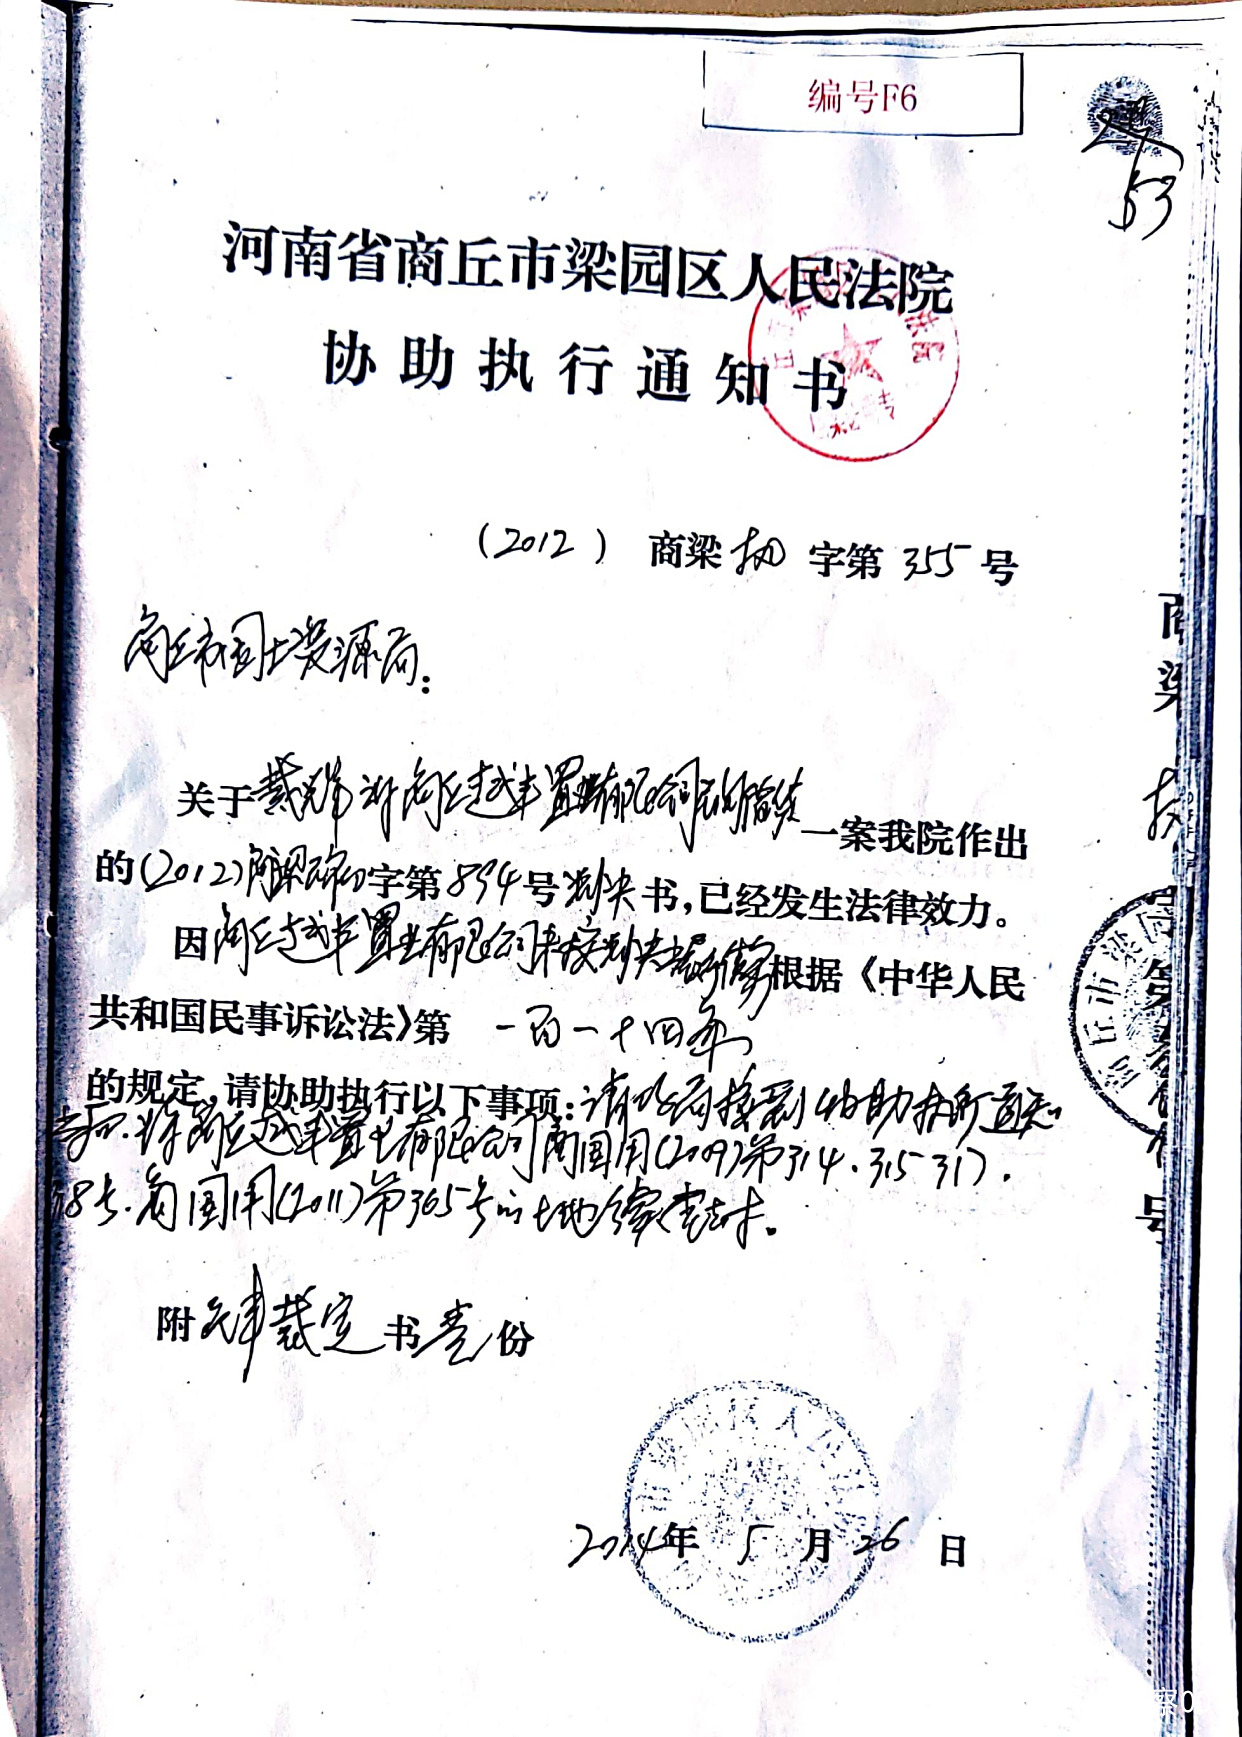 编号F6
53
河南省商丘市梁园区人民法院
协助执行通知书
(2012) 商梁执字第355号
商丘市国土资源局:
关于戴 诉商丘越丰置业有限公司 一案我院作出
的(2012)商梁民初字第894号判决书,已经发生法律效力。
因商丘越丰置业有限公司未按判决书 根据《中华人民
共和国民事诉讼法》第 一百一十四条
的规定,请协助执行以下事项:请 局接到协助执行通知
书 将商丘越丰置业有限公司商国用(2009)第314.315 317.
318号.商国用(2011)第365号的土地
附 裁定书壹份
2014年5月26日
商
梁
执
字
第
号